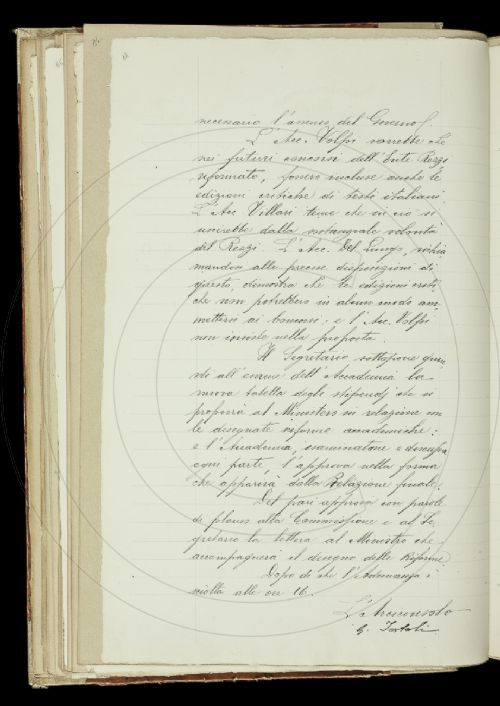 necessario l'assenso del Governo.
L'Acc. Volpi vorrebbe che
nei futuri concorsi dell'Ente Rezzi
riformato, fossero incluse anche le
edizioni critiche di testi italiani.
L'Acc. Villari teme che in ciò si
uscirebbe dalla volontà
del Rezzi. L'Acc. Del Lungo, richia
mandosi alle precise disposizioni di
questo, dimostra che le edizioni criti
che non potrebbero in alcun modo am
mettersi ai Concorsi: e l'Acc. Volpi
non insiste nella proposta.
Il Segretario sottopone quin
di all'esame dell'Accademia la
nuova tabella degli stipendj che si
proporrà al Ministero in relazione con
le disegnate riforme accademiche:
e l'Accademia, esaminatone e discussa
ogni parte, l'approva nella forma
che apparirà dalla Relazione finale.
Del pari approva con parole
di plauso alla Commissione e al Se
gretario la lettera al Ministro che
accompagnerà il disegno delle Riforme.
Dopo di che l'Adunanza è
sciolta alle ore 16.
L'Arciconsolo
G. Tortoli